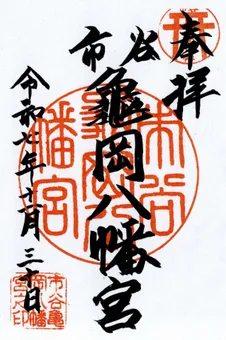 奉拝
市谷
龜岡八幡宮
令和七年十一月三十日
市谷
亀岡八
幡宮
市谷亀
岡八幡
宮之印